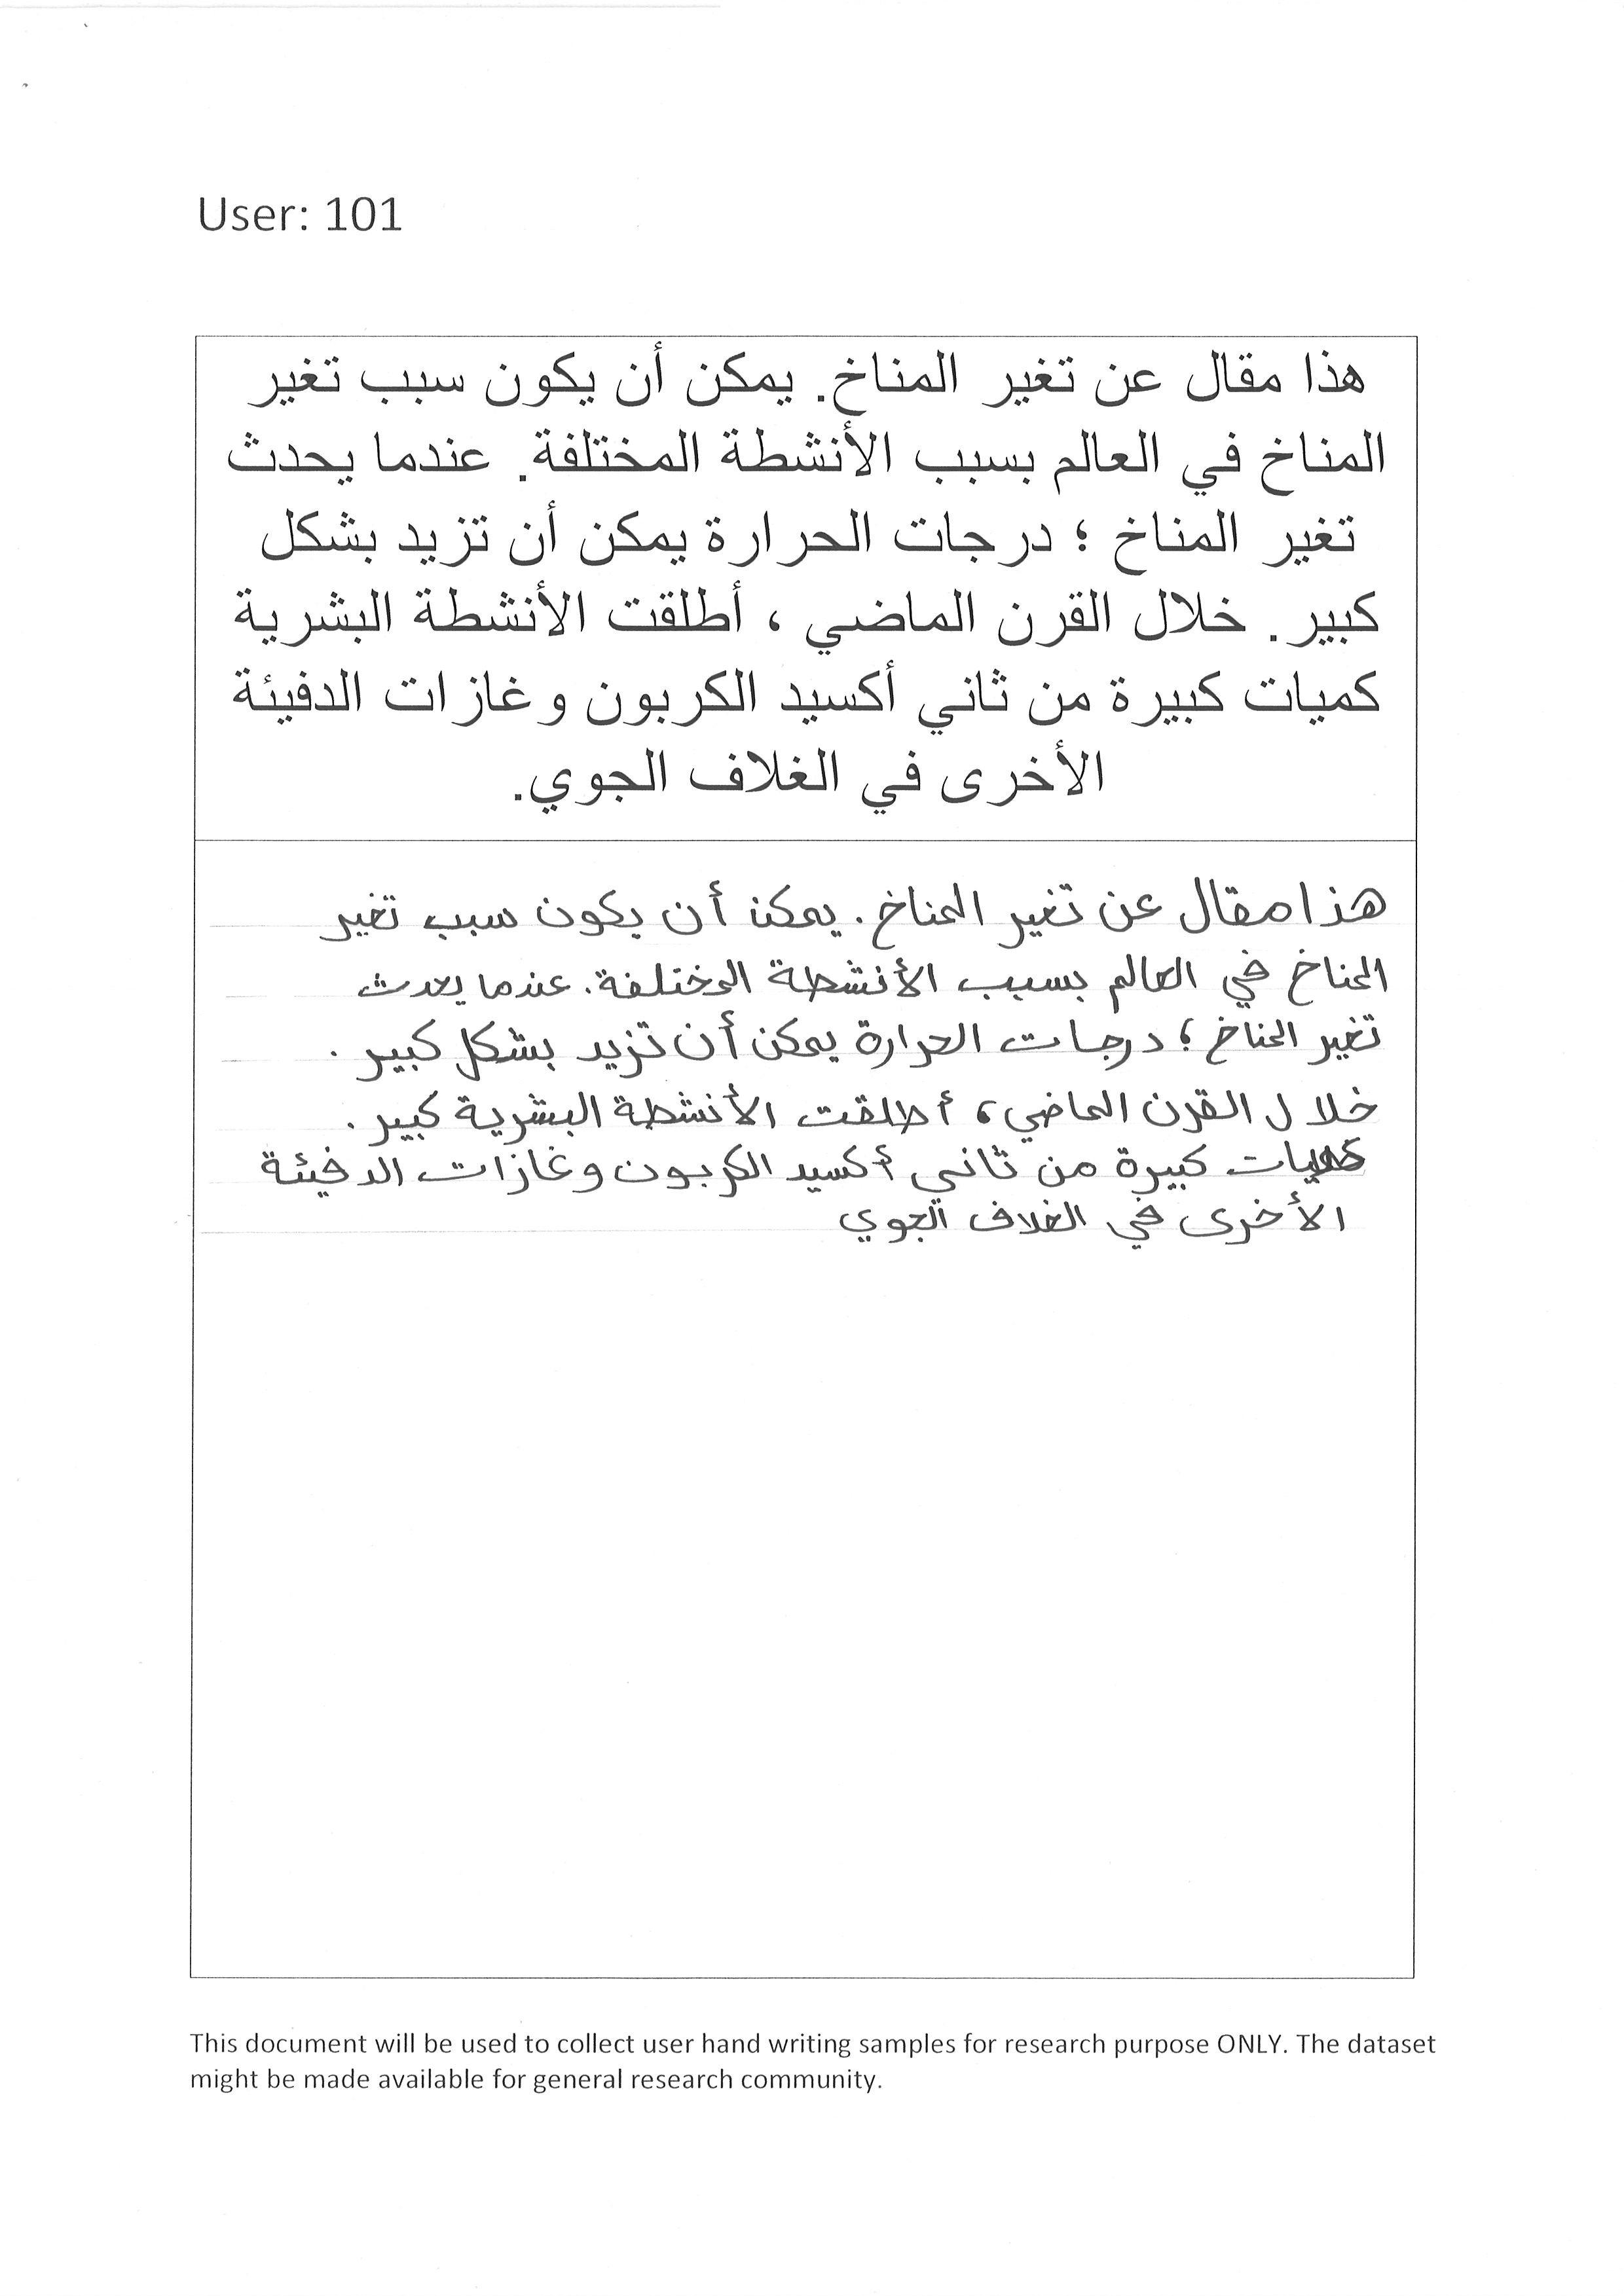 User: 101
هذا مقال عن تغير المناخ. يمكن أن يكون سبب تغير
المناخ في العالم بسبب الأنشطة المختلفة. عندما يحدث
تغير المناخ ؛ درجات الحرارة يمكن أن تزيد بشكل
كبير. خلال القرن الماضي ، أطلقت الأنشطة البشرية
كميات كبيرة من ثاني أكسيد الكربون وغازات الدفيئة
الأخرى في الغلاف الجوي.
هذا مقال عن تغير المناخ. يمكن أن يكون سبب تغير
المناخ في العالم بسبب الأنشطة المختلفة. عندما يحدث
تغير المناخ ؛ درجات الحرارة يمكن أن تزيد بشكل كبير.
خلال القرن الماضي ، أطلقت الأنشطة البشرية كبير.
كميات كبيرة من ثاني أكسيد الكربون وغازات الدفيئة
الأخرى في الغلاف الجوي
This document will be used to collect user hand writing samples for research purpose ONLY. The dataset
might be made available for general research community.